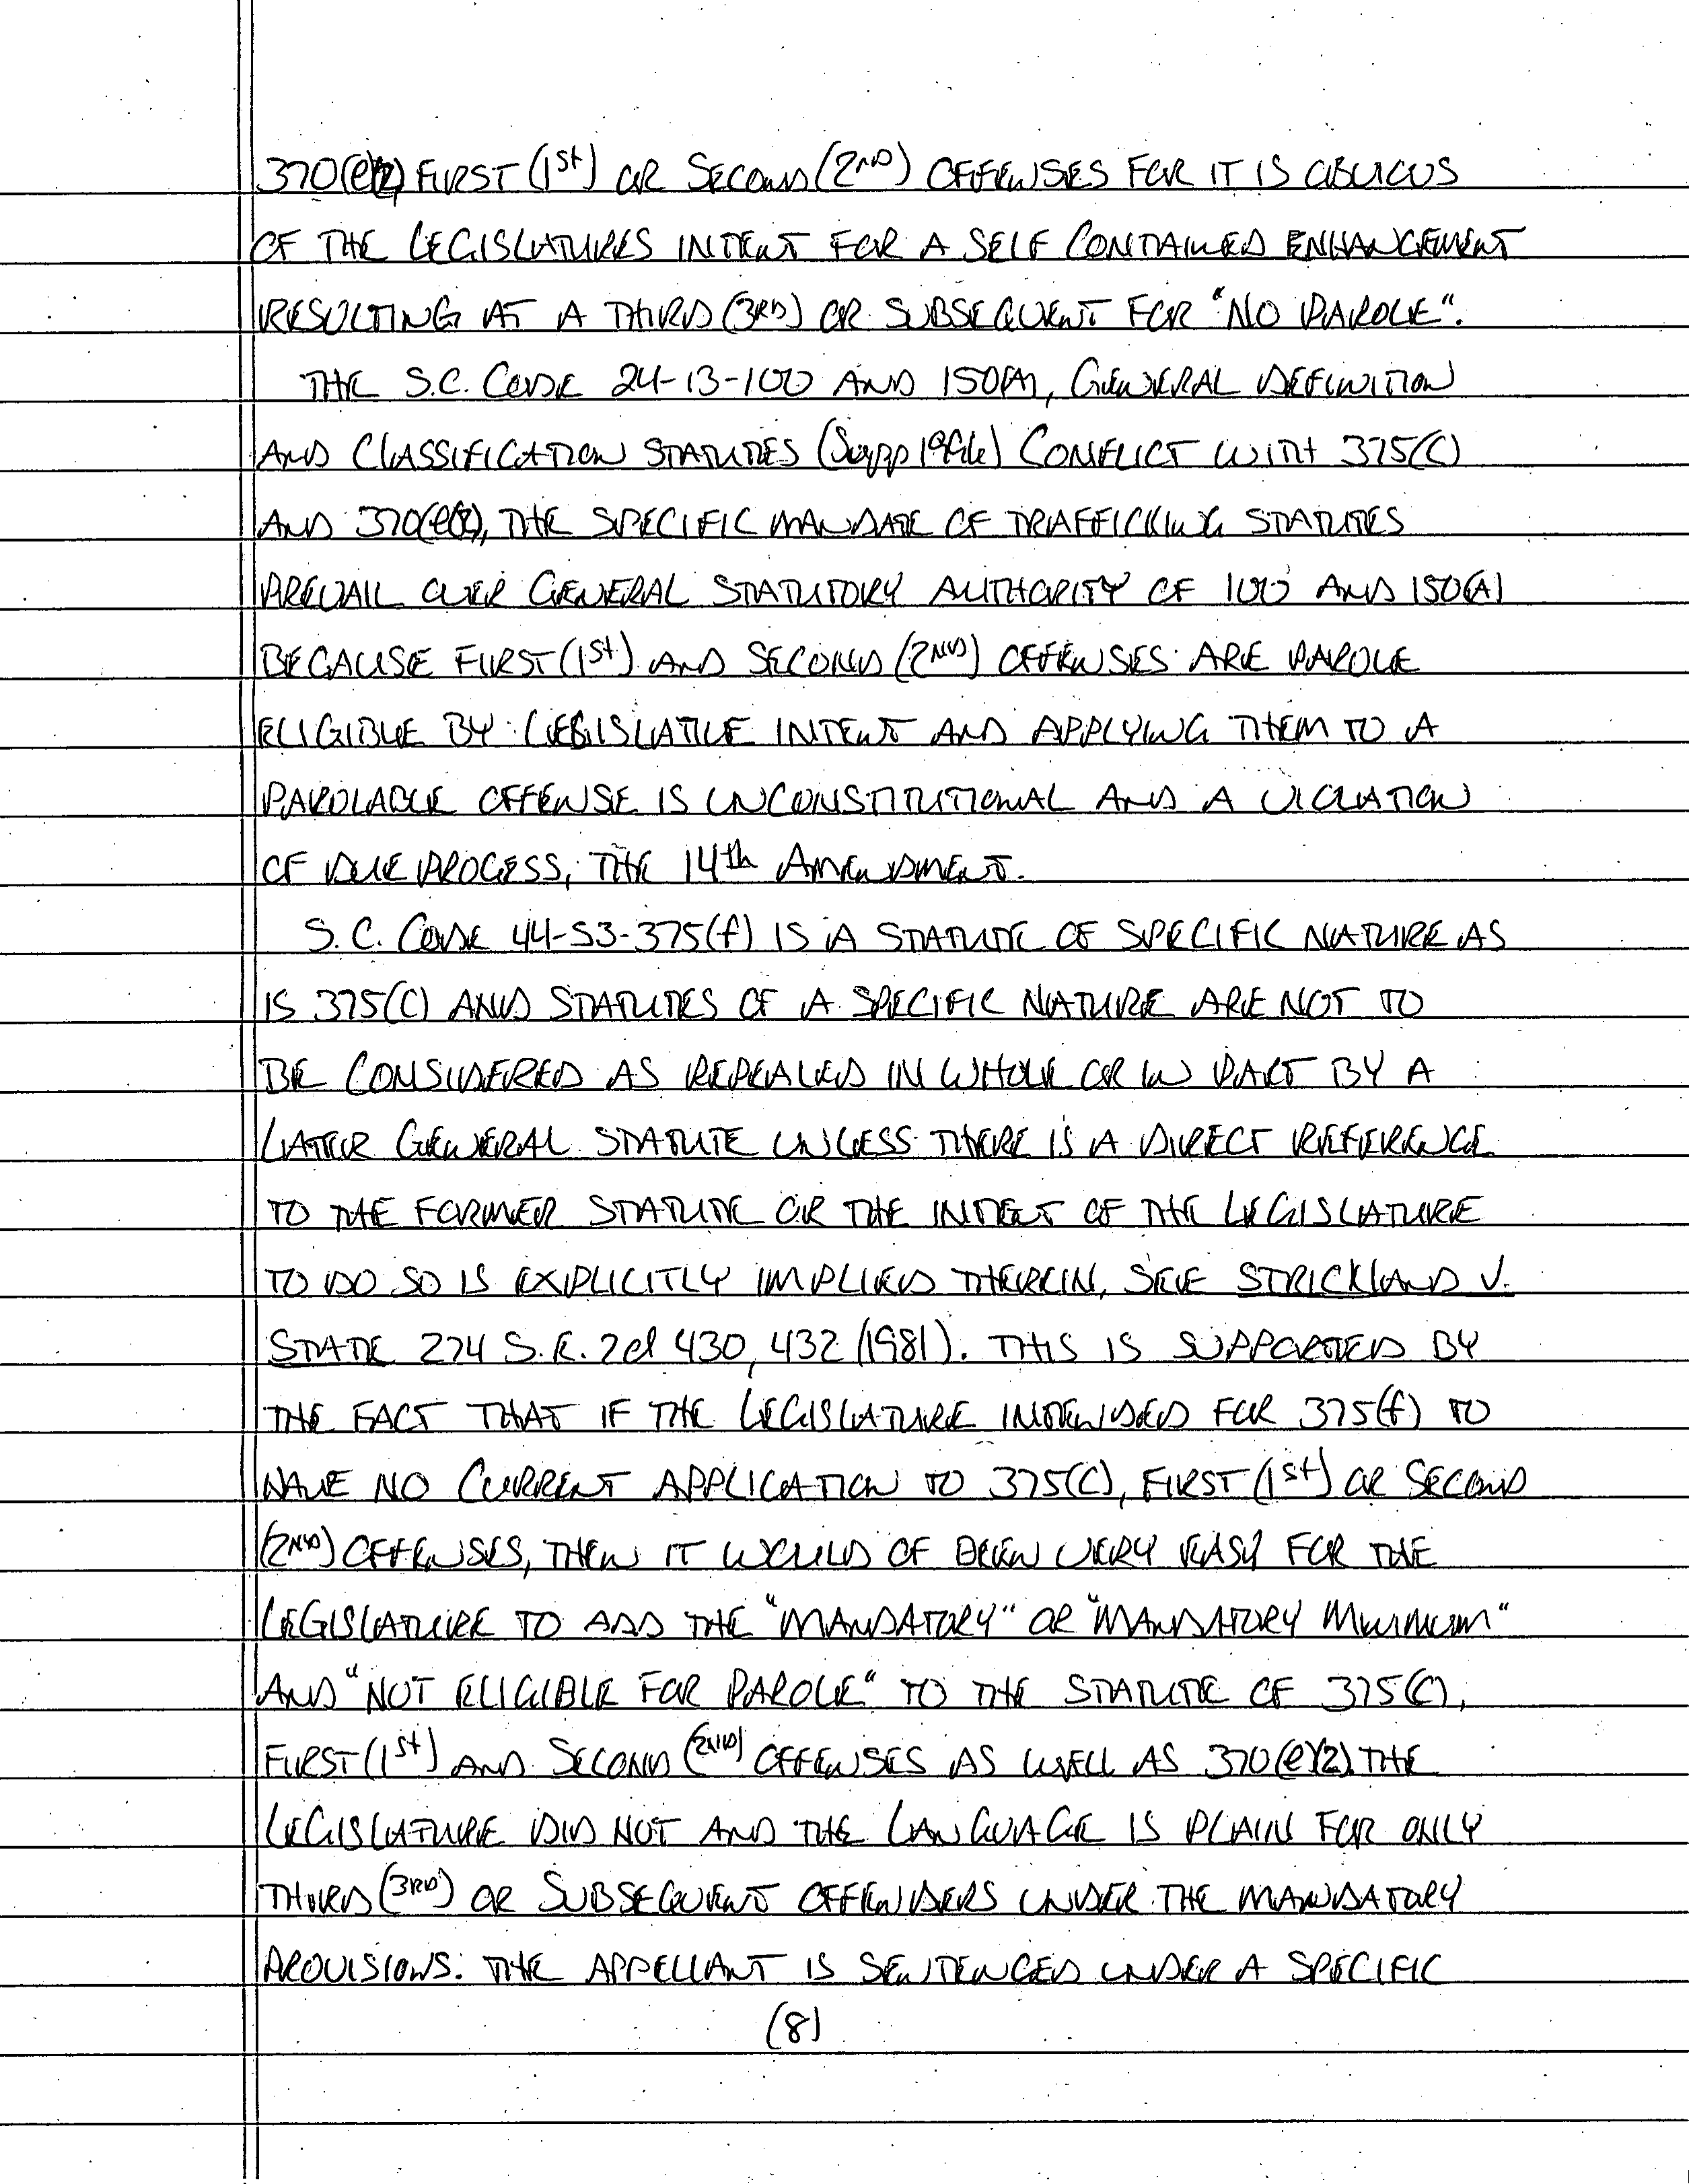 370(e)(2) FIRST (1St) OR SECOND (2ND) OFFENSES FOR IT IS OBVIOUS
OF THE LEGISLATURES INTENT FOR A SELF CONTAINED ENHANCEMENT
RESULTING AT A THIRD (3RD) OR SUBSEQUENT FOR "NO PAROLE".
THE S.C. CODE 24-13-100 AND 150(A), GENERAL DEFINITION
AND CLASSIFICATION STATUTES (Supp 1996) CONFLICT WITH 375(C)
AND 370(e)(2), THE SPECIFIC MANDATE OF TRAFFICKING STATUTES
PREVAIL OVER GENERAL STATUTORY AUTHORITY OF 100 AND 150(A)
BECAUSE FIRST (1St) AND SECOND (2ND) OFFENSES ARE PAROLE
ELIGIBLE BY LEGISLATIVE INTENT AND APPLYING THEM TO A
PAROLABLE OFFENSE IS UNCONSTITUTIONAL AND A VIOLATION
OF DUE PROCESS, THE 14th AMENDMENT.
S.C. CODE 44-53-375(f) IS A STATUTE OF SPECIFIC NATURE AS
IS 375(C) AND STATUTES OF A SPECIFIC NATURE ARE NOT TO
BE CONSIDERED AS REPEALED IN WHOLE OR IN PART BY A
LATER GENERAL STATUTE UNLESS THERE IS A DIRECT REFERENCE
TO THE FORMER STATUTE OR THE INTENT OF THE LEGISLATURE
TO DO SO IS EXPLICITLY IMPLIED THEREIN, SEE STRICKLAND V.
STATE 274 S.E. 2d 430, 432 (1981). THIS IS SUPPORTED BY
THE FACT THAT IF THE LEGISLATURE INTENDED FOR 375(f) TO
HAVE NO CURRENT APPLICATION TO 375(C), FIRST (1St) OR SECOND
(2ND) OFFENSES, THEN IT WOULD OF BEEN VERY EASY FOR THE
LEGISLATURE TO ADD THE "MANDATORY" OR "MANDATORY MINIMUM"
AND "NOT ELIGIBLE FOR PAROLE" TO THE STATUTE OF 375(C),
FIRST (1St) AND SECOND (2ND) OFFENSES AS WELL AS 370(e)(2). THE
LEGISLATURE DID NOT AND THE LANGUAGE IS PLAIN FOR ONLY
THIRD (3RD) OR SUBSEQUENT OFFENDERS UNDER THE MANDATORY
PROVISIONS. THE APPELLANT IS SENTENCED UNDER A SPECIFIC
(8)